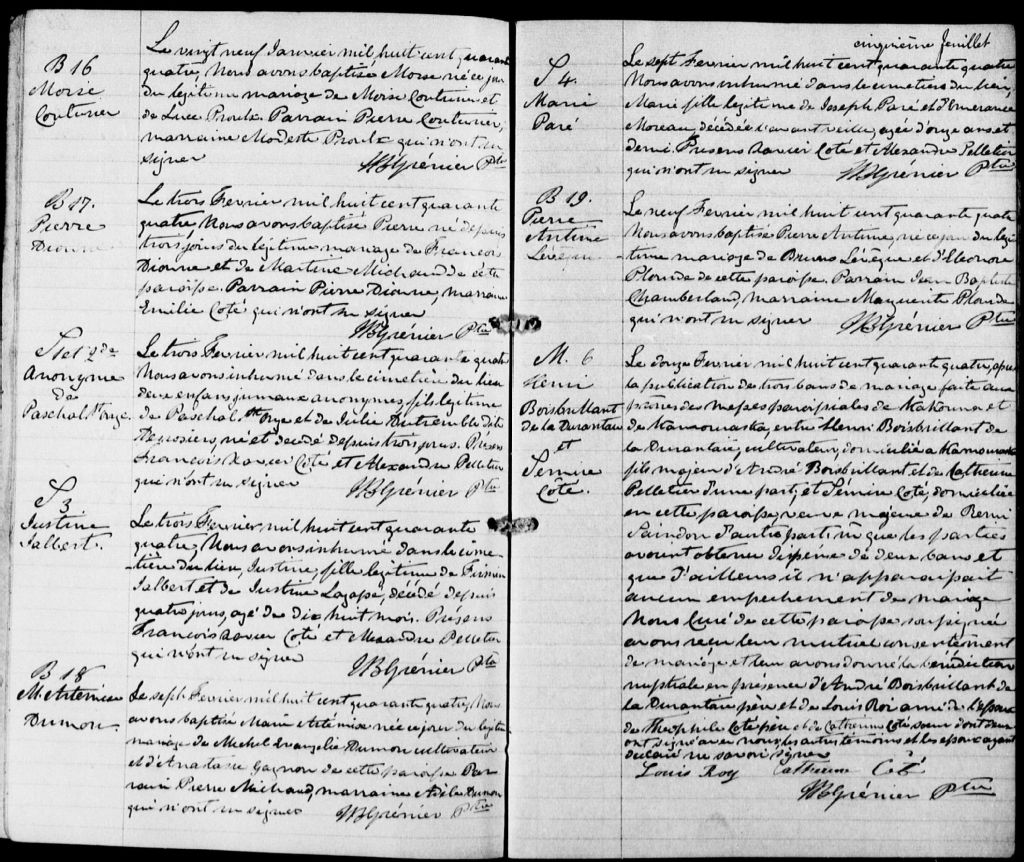 B 16
Moïse
Couturier
Le vingt neuf Janvier mil huit cent quarante
quatre, Nous avons baptisé Moïse né ce jour
du légitime mariage de Moïse Couturier et
de Luce Proulx. Parrain Pierre Couturier,
marraine Modeste Proulx qui n'ont su
signer
JBGrénier Ptre
B 17.
Pierre
Dionne
Le trois Fevrier mil huit cent quarante
quatre, Nous avons baptisé Pierre né depuis
trois jours du légitime mariage de François
Dionne et de Martine Michaud de cette
paroisse Parrain Pierre Dionne, marraine
Emilie Coté qui n'ont su signer
JBGrénier Ptre
S 1 et 2de
Anonyme
de
Paschal
Le trois Fevrier, mil huit cent quarante quatre
Nous avons inhumé dans le cimetière du lieu
deux enfans jumeaux anonymes, fils légitime
de Paschal et de Julie Dutremble dit
Derosiers, né et decedé depuis trois jours. Présens
François Xavier Coté et Alexandre Pelletier
qui n'ont su signer
JBGrénier Ptre
S 3
Justine
Jalbert.
Le trois Fevrier, mil huit cent quarante
quatre, Nous avons inhumé dans le cime-
tière du lieu, Justine, fille légitime de Firmin
Jalbert et de Justine Lagassé, décédé depuis
quatre jours, agé de dix huit mois. Présens
François Xavier Coté et Alexandre Pelletier
qui n'ont su signer
JBGrénier Ptre
B 18
M. Artémise
Dumon.
Le sept Fevrier mil huit cent quarante quatre, Nous
avons baptisé Marie Artémise née ce jour du légitime
mariage de Michel Evangelie Dumon cultivateur
et d'Anatasie Gagnon de cette paroisse Par-
rain Pierre Michaud, marraine Adèle Dumon
qui n'ont su signer
JBGrénier Ptre
cinquième feuillet
S 4.
Marie
Paré
Le sept Fevrier mil huit cent quarante quatre
Nous avons inhumé dans le cimetière du lieu,
Marie fille légitime de Joseph Paré et d'Emerance
Moreau, décédée l'avant veille, agée d'onze ans et
demi. Présens Xavier Coté et Alexandre Pelletier
qui n'ont su signer
JBGrénier Ptre
B 19.
Pierre
Antime
Lévêque
Le neuf Fevrier mil huit cent quarante quatre
Nous avons baptisé Pierre Antime, né ce jour du légi-
time mariage de Bruno Levêque et d'Eleonore
Plourde de cette paroisse. Parrain Jean Baptiste
Chamberland, marraine Marguerite Plourde
qui n'ont su signer
JBGrénier Ptre
M. 6
Henri
Boisbrillant
de la Durantaie
et
Femine
Côté.
Le douze Fevrier mil huit cent quarante quatre, après
la publication de trois bans de mariage faite aux
prônes des Messes paroissiales de Kakouna et
de Kamouraska, entre Henri Boisbrillant de
la Durantaie, cultivateur, domicilié à Kamouraska
fils majeur d'André Boisbrillant et de Catherine
Pelletier d'une part, et Fémine Coté, domiciliée
en cette paroisse, veuve majeure de Remi
Saindon d'autre part; vu que les parties
avoient obtenu dispense de deux bans et
que d'ailleurs il n'apparoissait
aucun empechement de mariage
Nous Curé de cette paroisse soussigné
avons reçu leur mutuel consentement
de mariage et leur avons donné la bénédiction
nuptiale en présence d'André Boisbrillant de
la Durantaie père et de Louis Roi ami de l'époux
de Théophile Coté père et de Catherine Coté soeur dont deux
ont signé avec nous, les autres témoins et les époux ayant
declaré ne savoir signer
Louis Roy Catherine Coté
JBGrénier Ptre